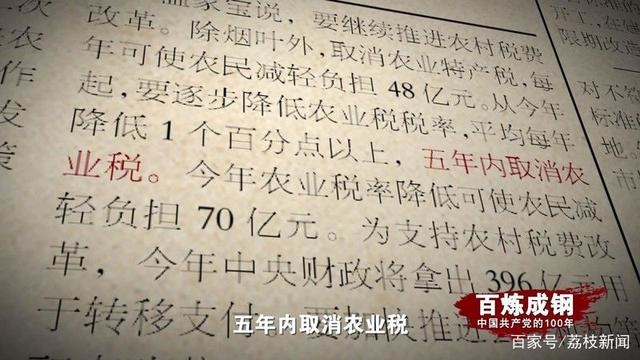 温家宝说，要继续推进农村税费
改革。除烟叶外，取消农业特产税，每
年可使农民减轻负担48亿元。从今年
起，要逐步降低农业税税率，平均每年
降低1个百分点以上，五年内取消农
业税。今年农业税率降低可使农民减
轻负担70亿元。为支持农村税费改
革，今年中央财政将拿出396亿元用
于转移支付
农
作
发
策
开工
限期改造
对不
标准
五年内取消农业税
百炼成钢
中国共产党的100年
百家号/荔枝新闻